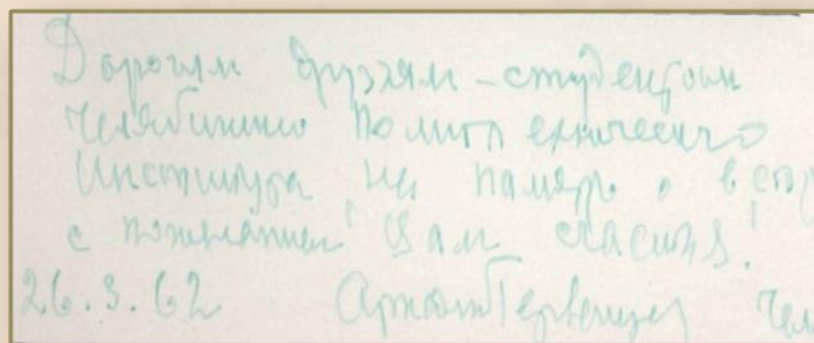 Дорогим друзьям - студентам
Челябинского Политехнического
Института на память о встр
с пожеланием Вам счастья!
26.3.62 Чел